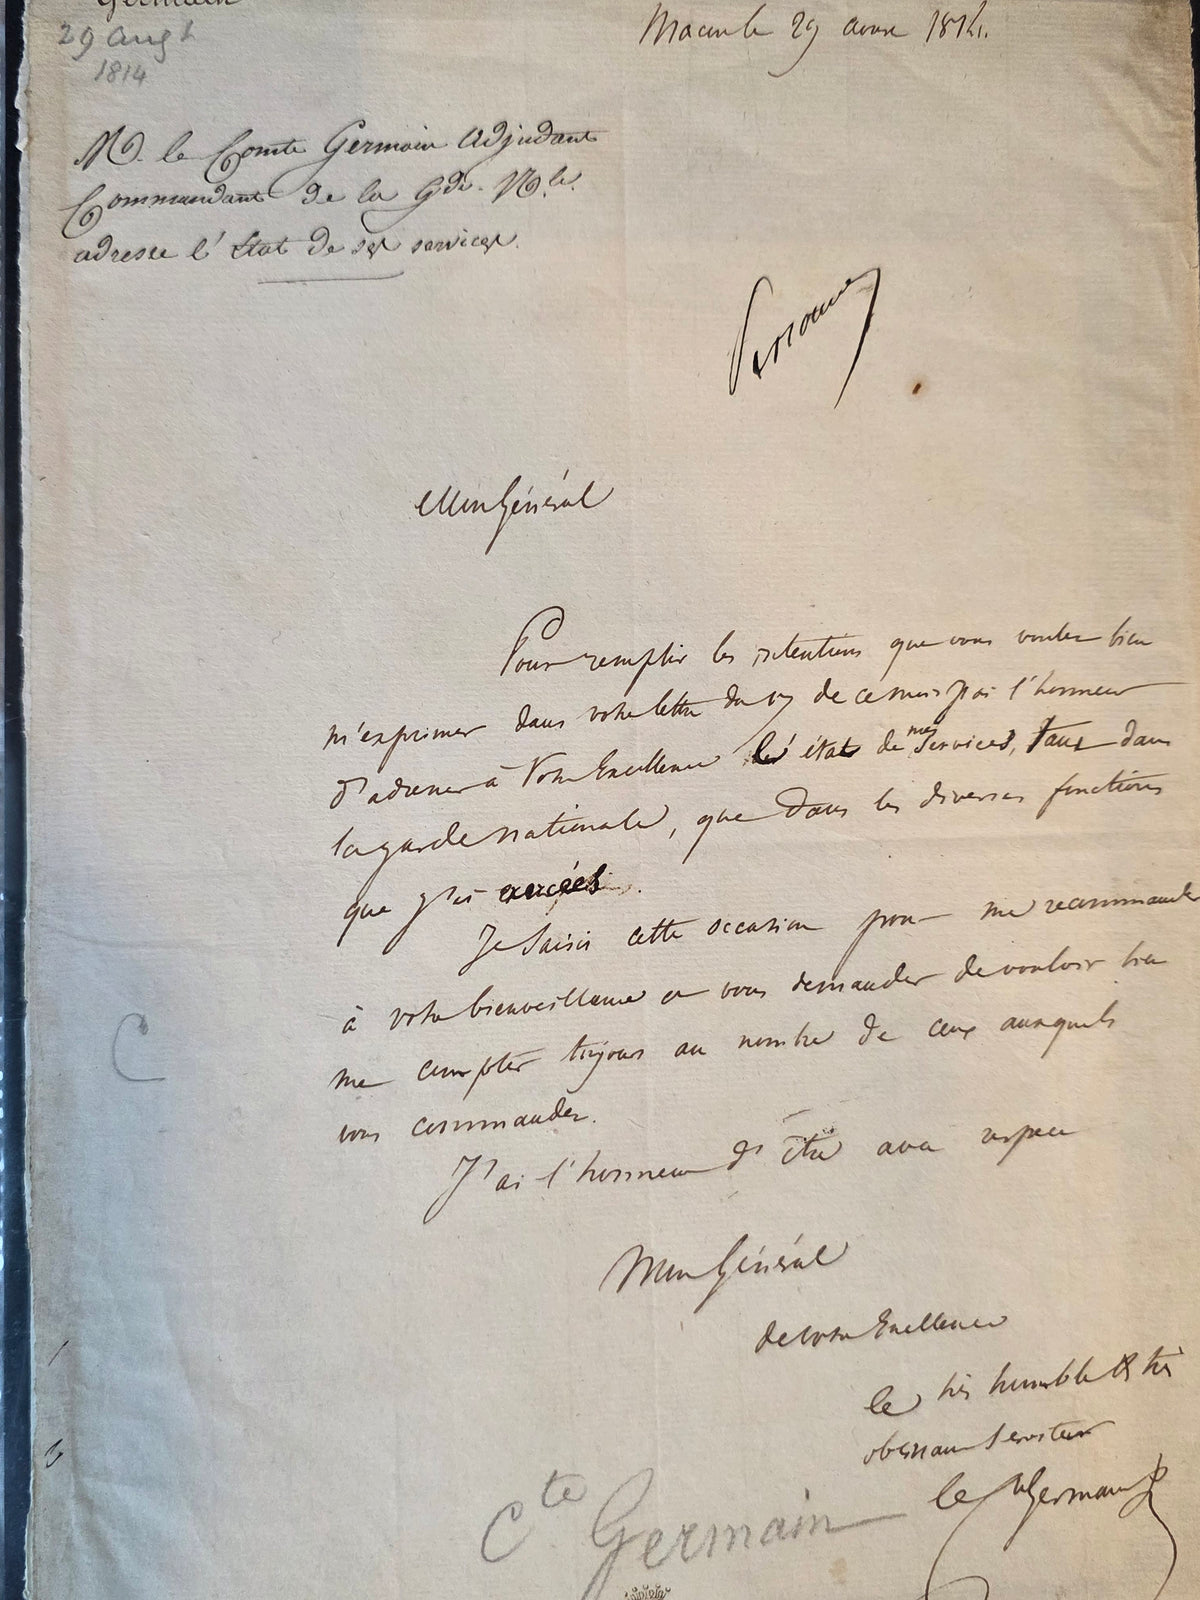 Germain
29 aug t
1814
Macon le 29 aoust 1814.
M. le Comte Germain Adjudant
Commandant de la Gde. Nle.
adresse l'état de ses services.
Personnel
Mon Général
Pour remplir les intentions que vous voulez bien
m'exprimer dans votre lettre du 17 de ce mois j'ai l'honneur
d'adresser à Votre Excellence les état de mes services, tant dans
la garde nationale, que dans les diverses fonctions
que j'ai exercées.
Je saisis cette occasion pour me recommander
à votre bienveillance et vous demander de vouloir bien
me compter toujours au nombre de ceux auxquels
vous commandez.
C
J'ai l'honneur d'être avec respect
Mon Général
de votre Excellence
le très humble & très
obéissant serviteur
le Cte Germain
Cte Germain